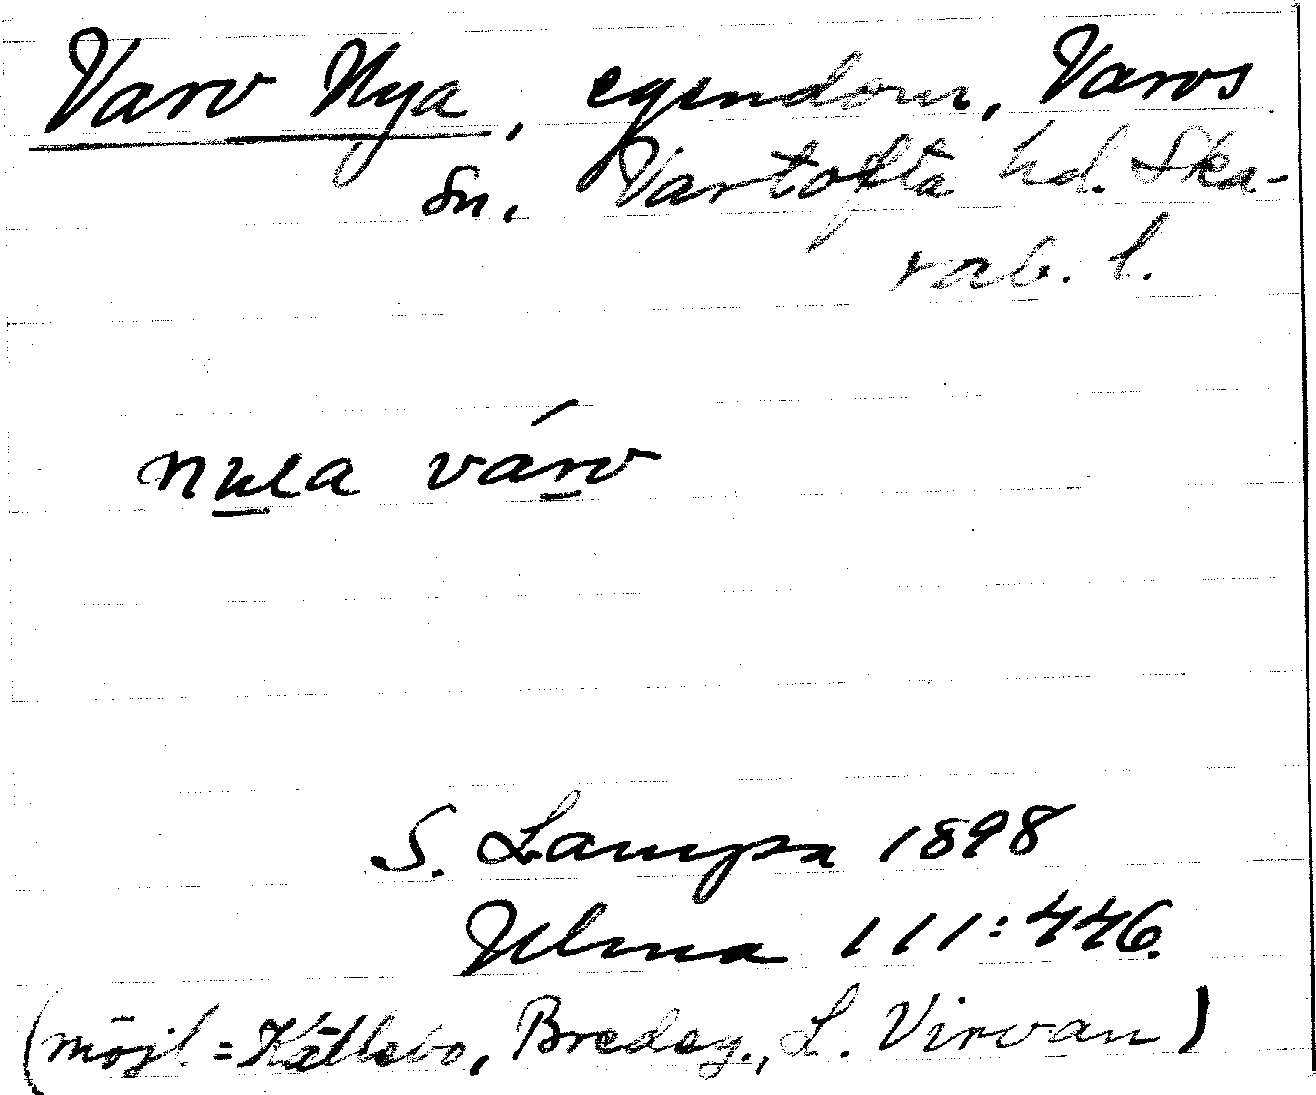 Varv Nya, egendom, Varvs
Sn. Vartofta hd. Ska-
rab. l.
nula várv
S. Lampa 1898
Ulma 111:446.
(möjl = Källebo, Bredeg., L. Virvan)